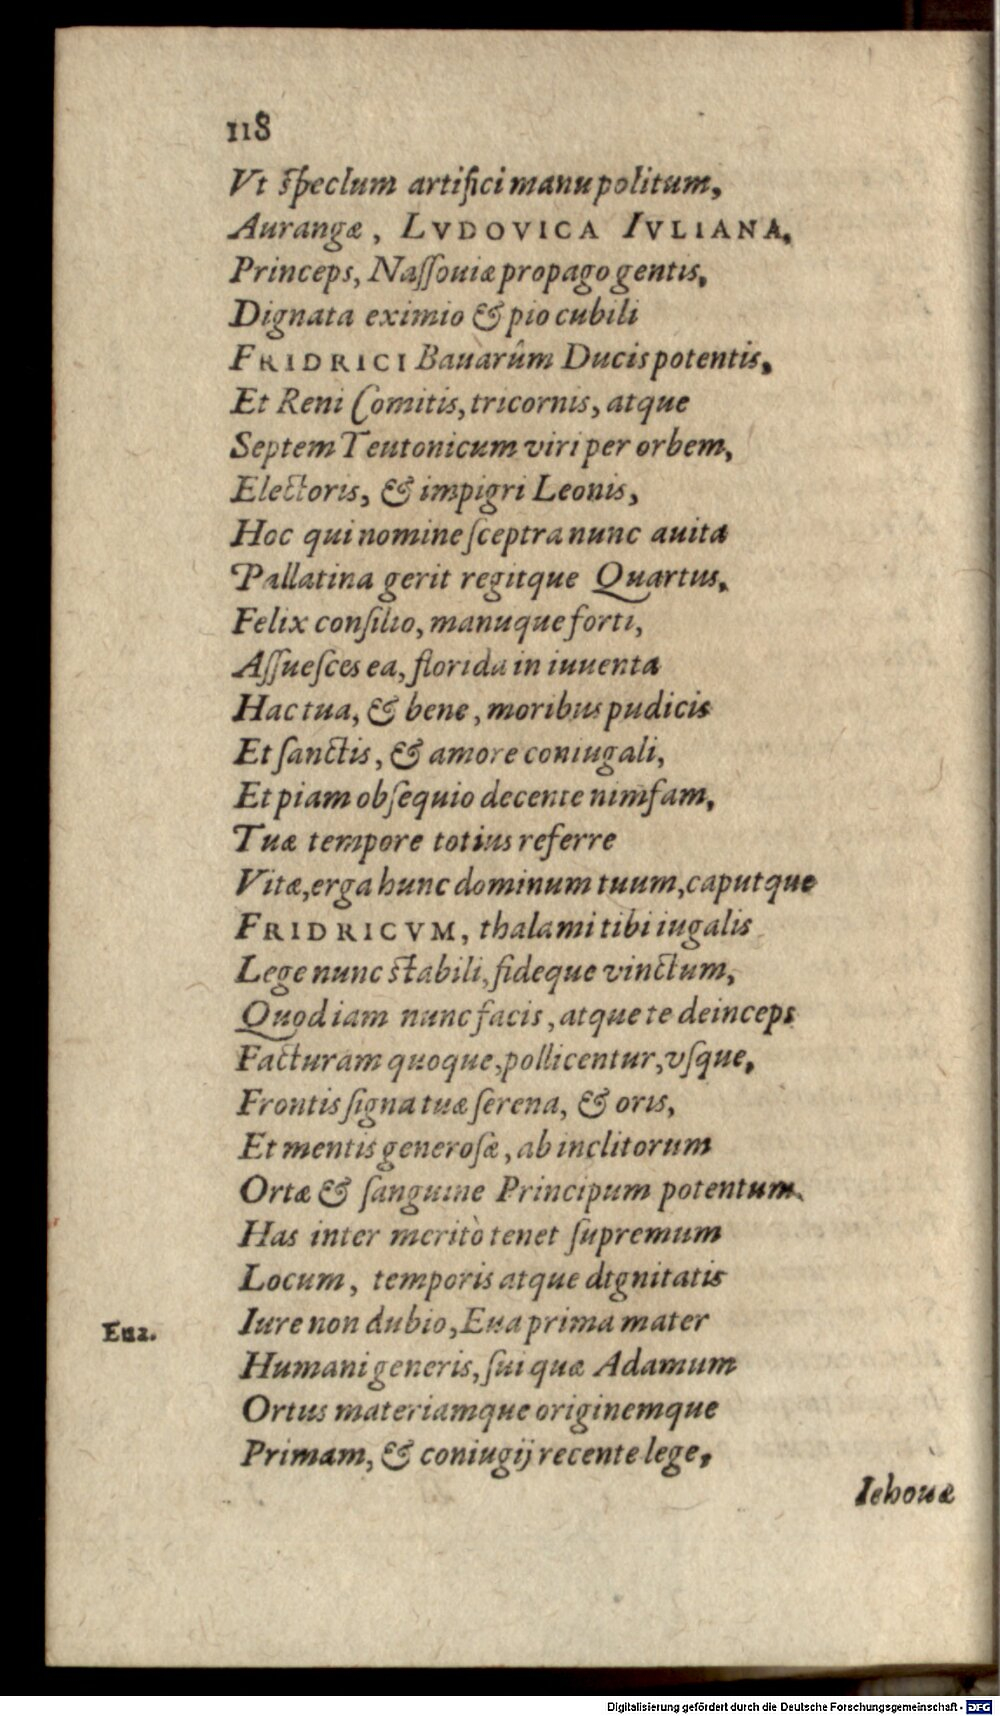 118
Vt speclum artifici manu politum,
Aurangæ, LVDOVICA IVLIANA,
Princeps, Naſſouiæ propago gentis,
Dignata eximio & pio cubili
FRIDRICI Bauarûm Ducis potentis,
Et Reni Comitis, tricornis, atque
Septem Teutonicum viri per orbem,
Electoris, & impigri Leonis,
Hoc qui nomine ſceptra nunc auita
Pallatina gerit regitque Quartus,
Felix conſilio, manuque forti,
Aſſueſces ea, florida in iuuenta
Hac tua, & bene, moribus pudicis
Et ſanctis, & amore coniugali,
Et piam obſequio decente nimfam,
Tuæ tempore totius referre
Vitæ, erga hunc dominum tuum, caputque
FRIDRICVM, thalami tibi iugalis
Lege nunc ſtabili, fideque vinctum,
Quod iam nunc facis, atque te deinceps
Facturam quoque, pollicentur, vſque,
Frontis ſigna tuæ ſerena, & oris,
Et mentis generoſæ, ab inclitorum
Ortæ & ſanguine Principum potentum.
Has inter meritò tenet ſupremum
Locum, temporis atque dignitatis
Iure non dubio, Eua prima mater
Eua.
Humani generis, ſui quæ Adamum
Ortus materiamque originemque
Primam, & coniugij recente lege,
Iehouæ
Digitalisierung gefördert durch die Deutsche Forschungsgemeinschaft - DFG